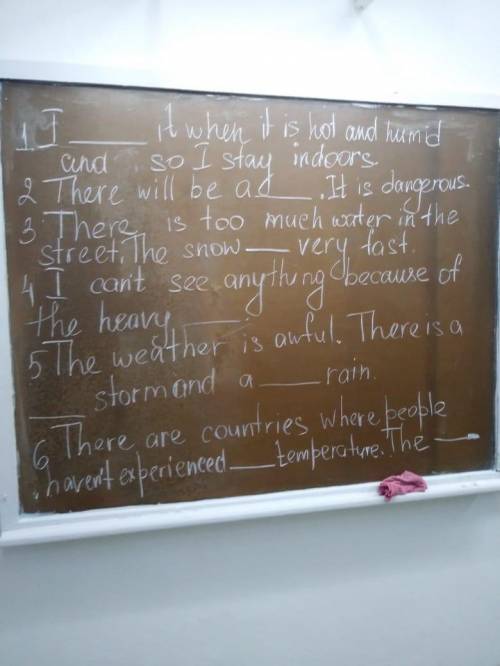 1 I ____ it when it is hot and humid
and so I stay indoors.
2 There will be a ____. It is dangerous.
3 There is too much water in the
street. The snow ____ very fast.
4 I can't see anything because of
the heavy ____
5 The weather is awful. There is a
____ storm and a ____ rain.
6 There are countries where people
haven't experienced ____ temperature. The ____